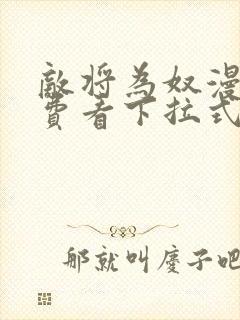 敵将為奴漫
費看下拉式
那就叫慶子吧